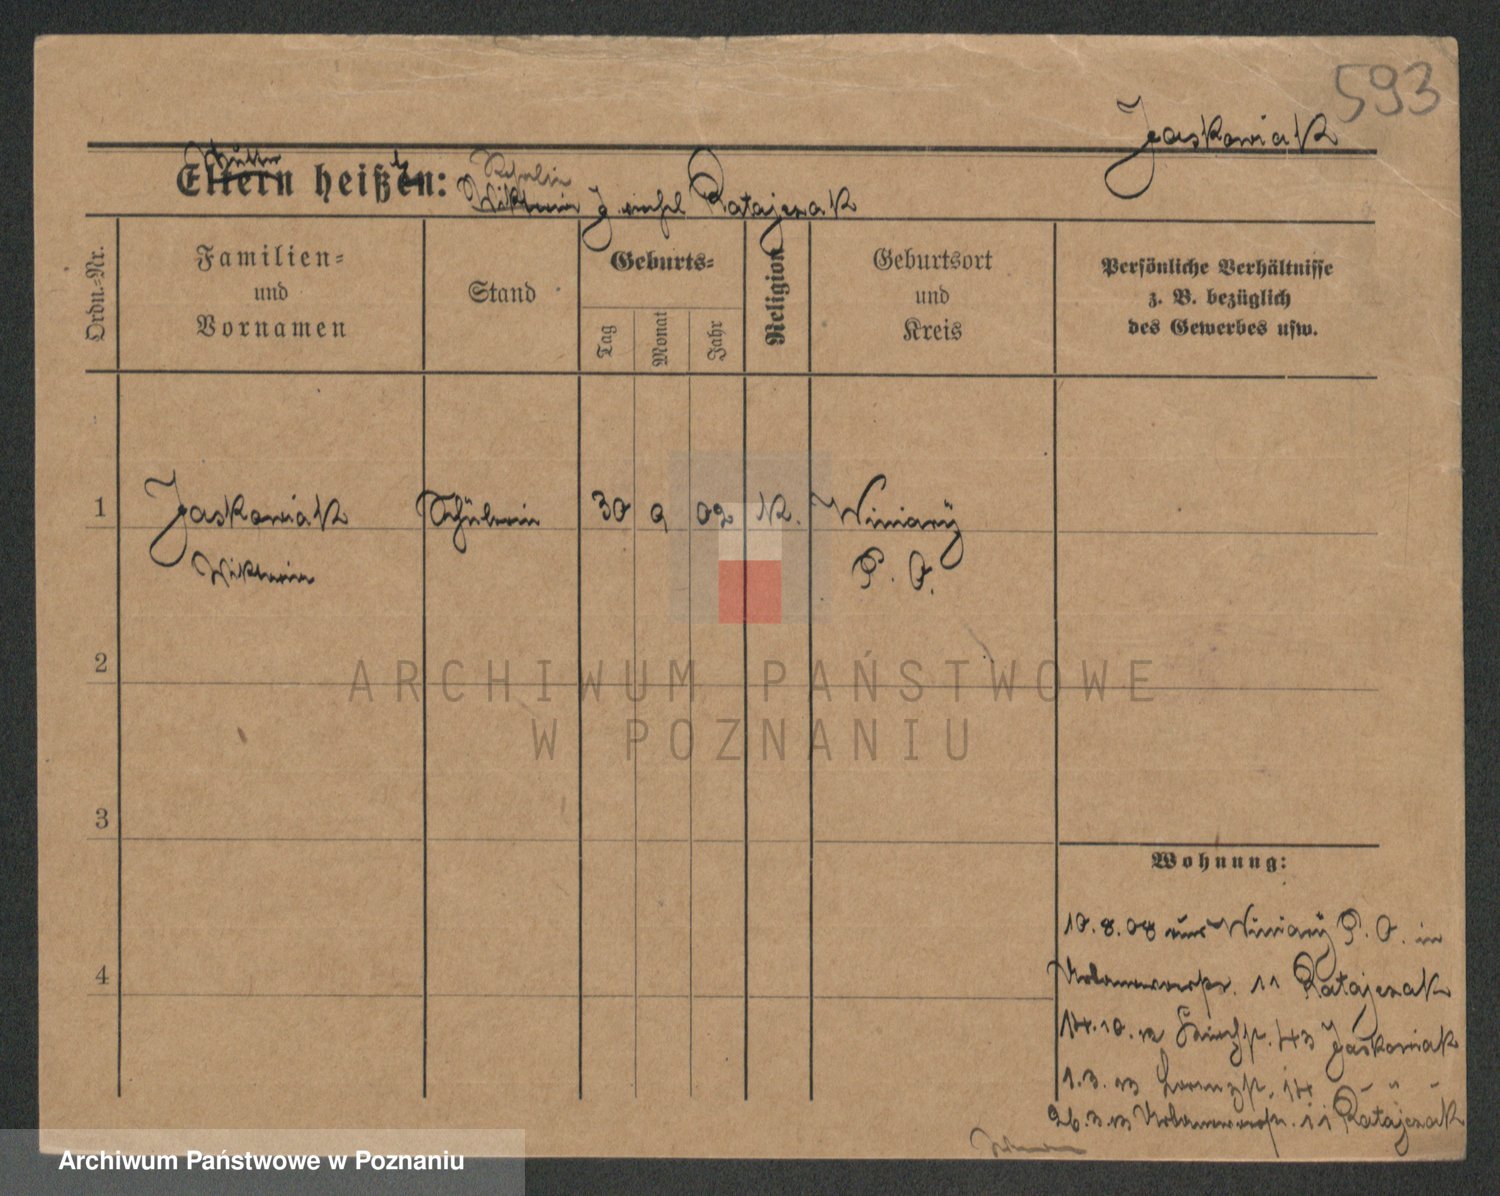 593
Jaskowiak
Mutter
Eltern heißen:
J. verehl Ratajczak
Ordn.-Nr.
Familien-
und
Vornamen
Stand
Geburts-
Tag
Monat
Jahr
Religion
Geburtsort
und
Kreis
Persönliche Verhältnisse
z. B. bezüglich
des Gewerbes usw.
1
Jaskowiak
Schülerin
30
9
02
K.
Winiary
Wiktoria
P. O.
2
3
4
Wohnung:
10. 8. 08 aus Winiary P. O. in
11 Ratajczak
14. 10. 12 43 Jaskowiak
1. 3. 13 Lorenzstr. 14 " " "
26. 3. 13 11 Ratajczak
ARCHIWUM PAŃSTWOWE
W POZNANIU
Archiwum Państwowe w Poznaniu